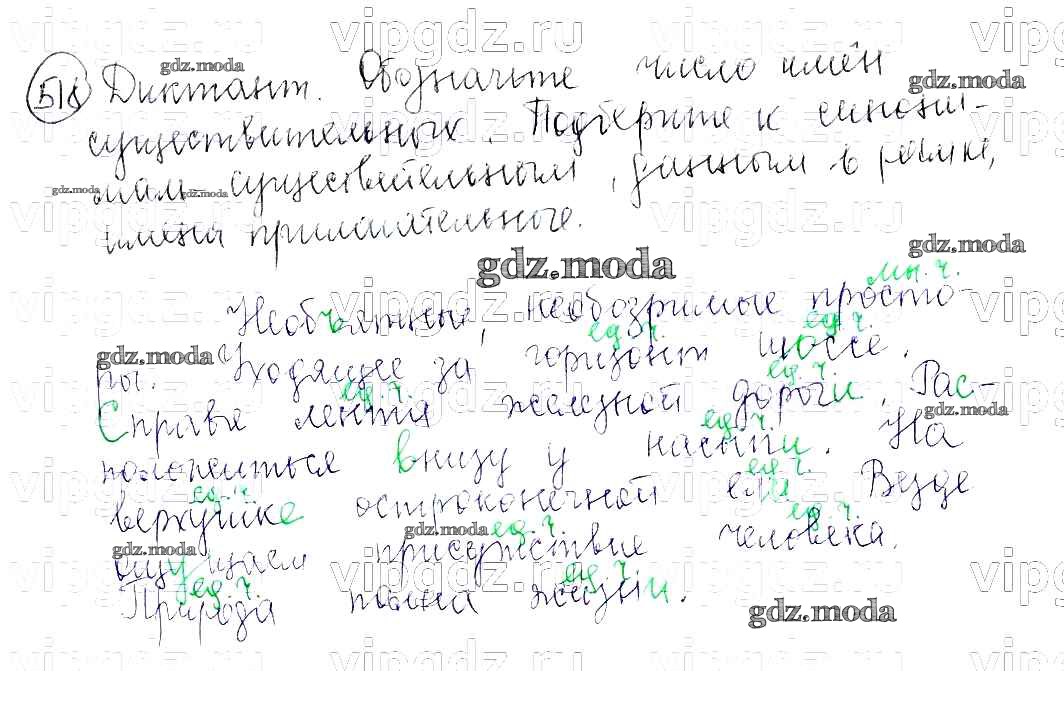 518 Диктант. Обозначьте число имён
существительных. Подберите к синони-
мам-существительным, данным в рамке,
имена прилагательные.
мн. ч.
Необъятные, необозримые просто-
ед. ч. ед. ч.
ры. Уходящее за горизонт шоссе.
ед. ч. ед. ч.
Справа лента железной дороги. Рас-
ед. ч.
положиться внизу у насыпи. На
ед. ч. ед. ч.
верхушке остроконечной ели. Везде
ед. ч. ед. ч.
ощущаем присутствие человека.
ед. ч. ед. ч.
Природа полна жизни.
vipgdz.ru
gdz.moda